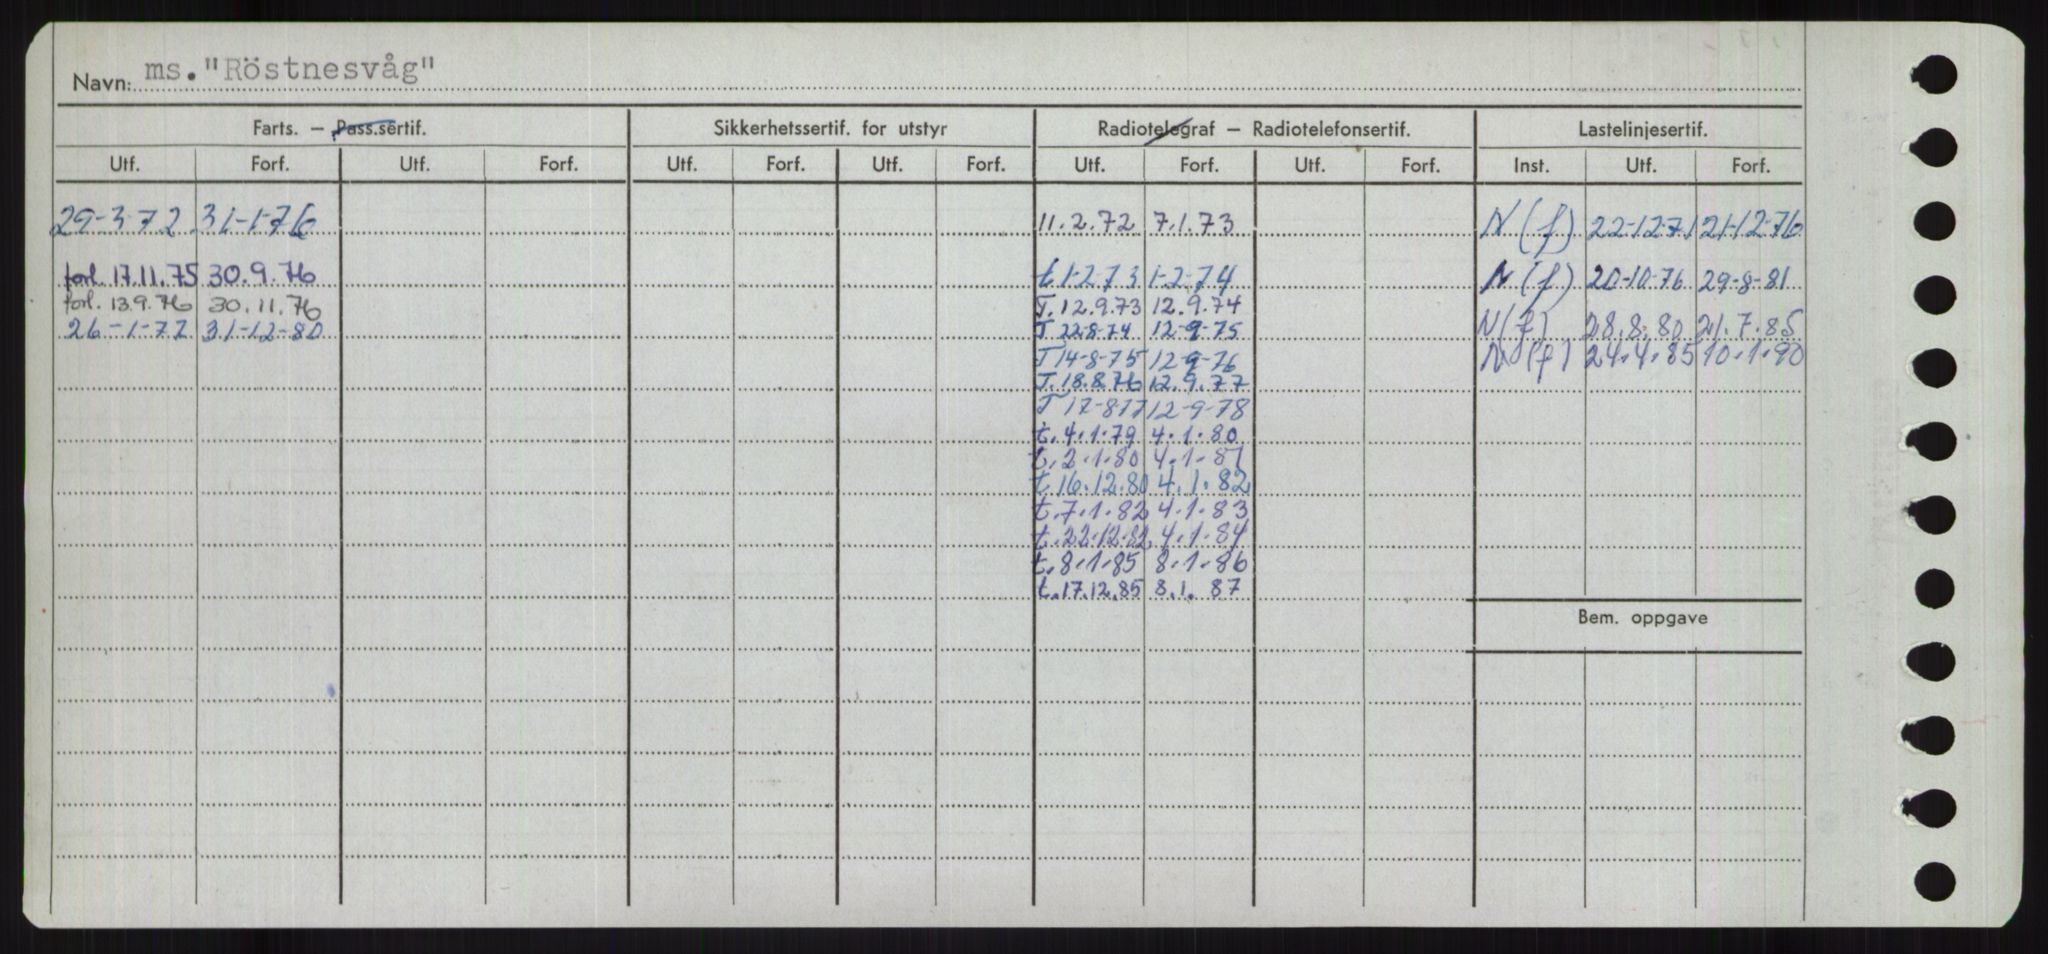 Navn: ms. "Röstnesvåg"
Farts. – Pass.sertif. Sikkerhetssertif. for utstyr Radiotelegraf – Radiotelefonsertif. Lastelinjesertif.
Utf. Forf. Utf. Forf. Utf. Forf. Utf. Forf. Utf. Forf. Utf. Forf. Inst. Utf. Forf.
29-3-72 31-1-76 11.2.72 7.1.73 N (f) 22-12-71 21-12-76
forl. 17.11.75 30.9.76 t 1-2-73 1-2-74 N (f) 20-10-76 29-8-81
forl. 13.9.76 30.11.76 T. 12.9.73 12.9.74
26-1-77 31-12-80 T 22-8-74 12-9-75 N (f) 28.8.80 21.7.85
T 14-8-75 12-9-76 N (f) 24.4.85 10.1.90
T. 18.8.76 12.9.77
T 17-8-77 12-9-78
t. 4.1.79 4.1.80
t. 2.1.80 4.1.81
t 16.12.80 4.1.82
t. 7.1.82 4.1.83
t. 22.12.82 4.1.84
t. 8.1.85 8.1.86
t. 17.12.85 8.1.87
Bem. oppgave